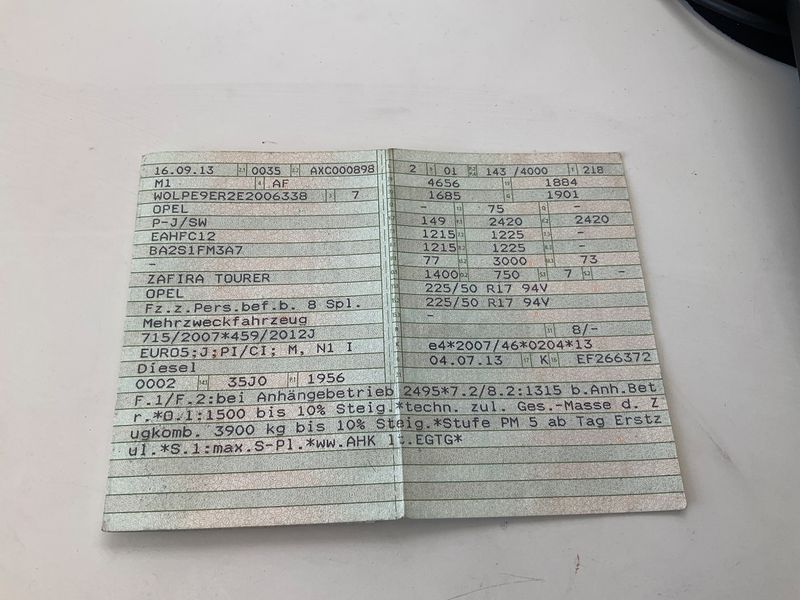 16.09.13 0035 AXC000898
M1 AF
W0LPE9ER2E2006338 7
OPEL
P-J/SW
EAHFC12
BA2S1FM3A7
-
ZAFIRA TOURER
OPEL
Fz.z.Pers.bef.b. 8 Spl.
Mehrzweckfahrzeug
715/2007*459/2012J
EURO5;J;PI/CI; M, N1 I
Diesel
0002 35J0 1956
2 01 143 /4000 218
4656 1884
1685 1901
- 75 -
149 2420 2420
1215 1225 -
1215 1225 -
77 3000 73
1400 750 7 -
225/50 R17 94V
225/50 R17 94V
-
8/-
e4*2007/46*0204*13
04.07.13 K EF266372
F.1/F.2:bei Anhängebetrieb 2495*7.2/8.2:1315 b.Anh.Bet
r.*O.1:1500 bis 10% Steig.*techn. zul. Ges.-Masse d. Z
ugkomb. 3900 kg bis 10% Steig.*Stufe PM 5 ab Tag Erstz
ul.*S.1:max.S-Pl.*ww.AHK lt.EGTG*